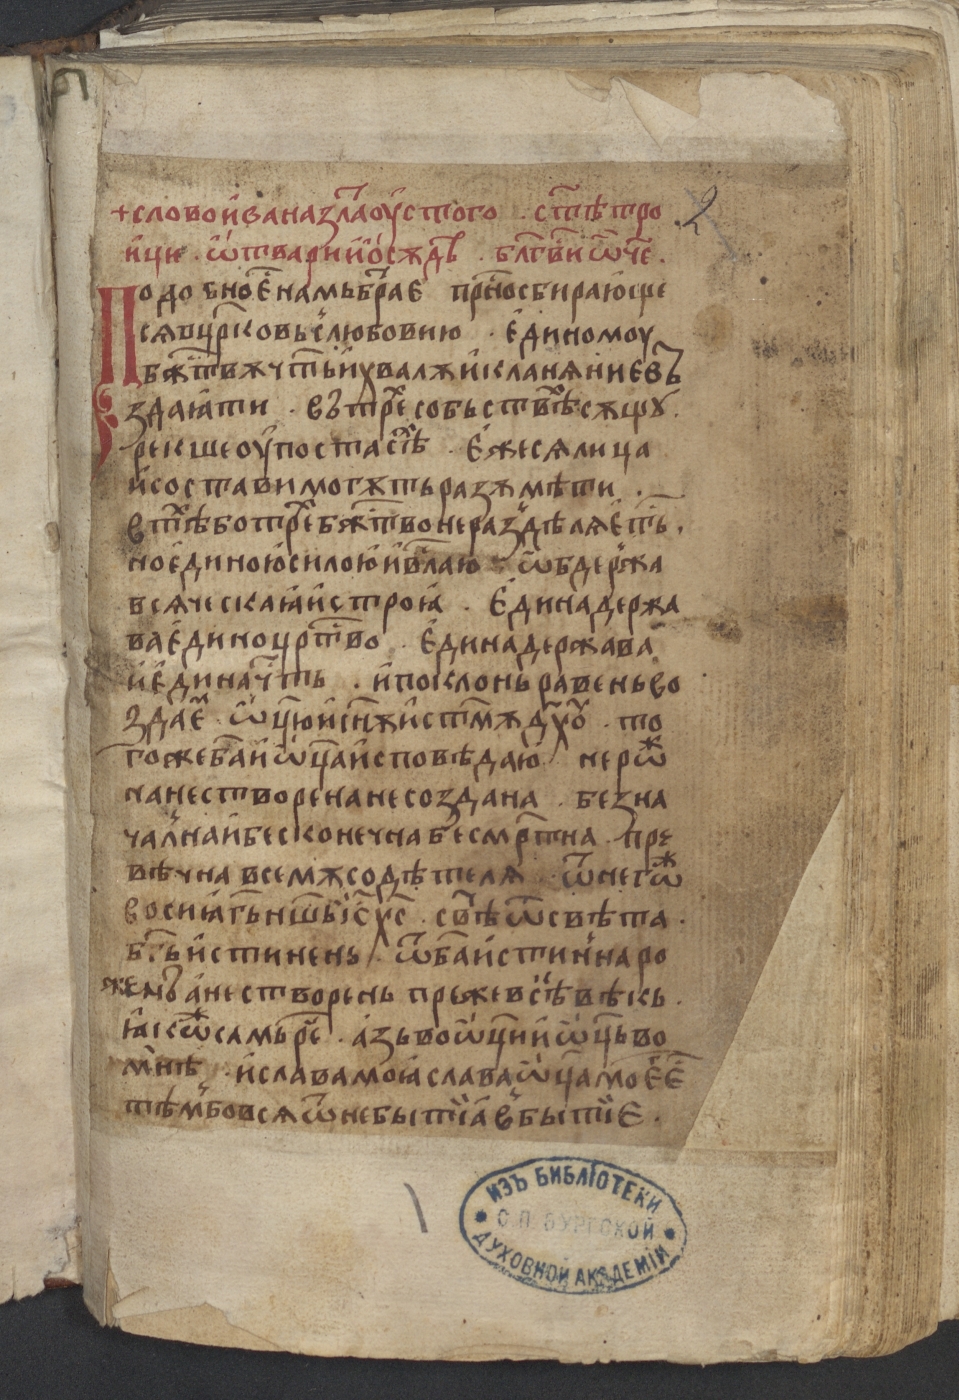 + слово и҆вана злⷶаоу҆стого . ст҃ѣи тро
2
ици . ѿ твари и҆ ѡ҆ сѫдѣ . блг҇ви ѿч҃е .
Подобно є҆ намь бра҃є прⷭ҇но сбирающе
сѧ в цр҃ковь с любовию . є҆диномоу
бж҇твꙋ чⷭ҇ть и҆ хвалѫ и҆ кланѧниє въ
здаꙗти . въ трⷯе собьствⷯѣ сѫщꙋ .
рекше оу҆постасⷯѣ . є҆же сѧ лица
и҆ состави могѫть разѫмѣти .
в тⷯѣ бо трⷯе бж҇тво не раздѣлѧєть .
но є҆диною силою и҆ влⷭ҇аю ѡ҆бдержа
всѧческаꙗ и҆ строꙗ . є҆дина держа
ва є҆дино црⷭ҇тво . є҆дина держава
и҆ є҆дина чⷭ҇ть . и҆ поклонь равень во
здає . ѿц҃ю и҆ сн҃ѫ и҆ ст҃мѫ дх҃ѹ . то
гоже ба҃ и҆ ѿц҃а и҆споведаю нерѡⷤ
на нестворена несоздана . безна
чална и҆ бесконечна бесмр҃тна пре
вѣчна всемѫ содѣтелѧ . ѿ негѡⷤ
восиꙗ гь҃ нш҃ь іс҃ хс҃ . свⷮѣ ѿ свѣта .
бг҃ь и҆стинень ѿ ба҃ и҆стинна ро
жень а҆ не створень прѣже всⷯѣ вѣкь .
ꙗкѡⷤ самь рⷱ҇е . азь во ѿц҃и и҆ ѿц҃ь во
мнѣ . и҆ слава моꙗ слава ѿц҃а моєⷢ є҆
тѣмь бо всѧ ѿ небытиꙗ в бытиє .
ИЗЪ БИБЛІОТЕКИ
С.П.БУРГСКОЙ
ДУХОВНОЙ АКАДЕМІИ